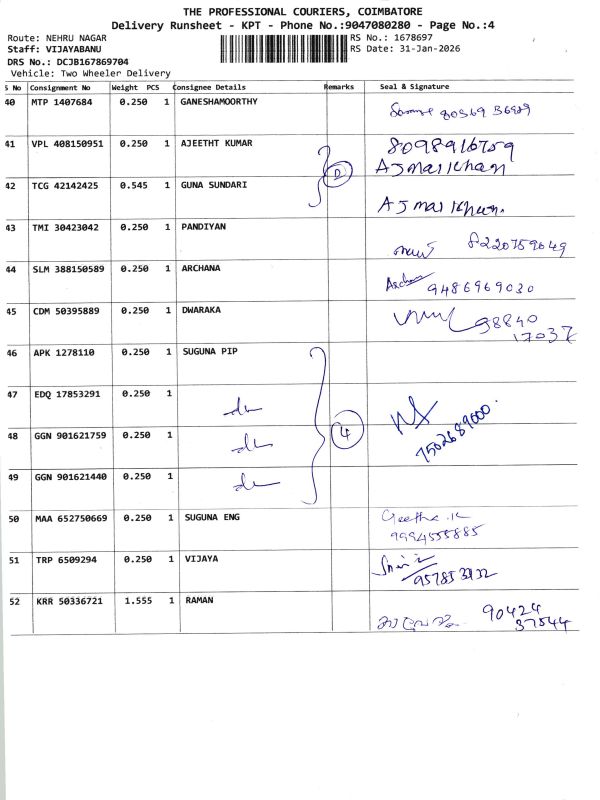 THE PROFESSIONAL COURIERS, COIMBATORE
Delivery Runsheet - KPT - Phone No.:9047080280 - Page No.:4
Route: NEHRU NAGAR
RS No.: 1678697
Staff: VIJAYABANU
RS Date: 31-Jan-2026
DRS No.: DCJB167869704
Vehicle: Two Wheeler Delivery
S No Consignment No Weight PCS Consignee Details Remarks Seal & Signature
40 MTP 1407684 0.250 1 GANESHAMOORTHY
41 VPL 408150951 0.250 1 AJEETHT KUMAR 8098916759
Ajmal Khan
42 TCG 42142425 0.545 1 GUNA SUNDARI
Ajmal Khan.
43 TMI 30423042 0.250 1 PANDIYAN
8220759649
44 SLM 388150589 0.250 1 ARCHANA Archana
9486969030
45 CDM 50395889 0.250 1 DWARAKA
98840
17037
46 APK 1278110 0.250 1 SUGUNA PIP
47 EDQ 17853291 0.250 1 do
4
7502689000
48 GGN 901621759 0.250 1 do
49 GGN 901621440 0.250 1 do
50 MAA 652750669 0.250 1 SUGUNA ENG Geetha .K
9994555885
51 TRP 6509294 0.250 1 VIJAYA
52 KRR 50336721 1.555 1 RAMAN 90424
37544